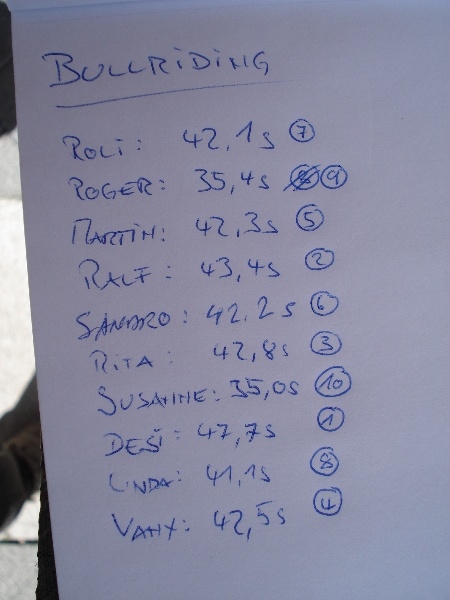 BULLRIDING
ROLI: 42,1s 7
ROGER: 35,4s 9
MARTIN: 42,3s 5
RALF: 43,4s 2
SANDRO: 42.2s 6
RITA: 42,8s 3
SUSANNE: 35,0s 10
DEŠI: 47,7s 1
LINDA: 41,1s 8
VANY: 42,5s 4